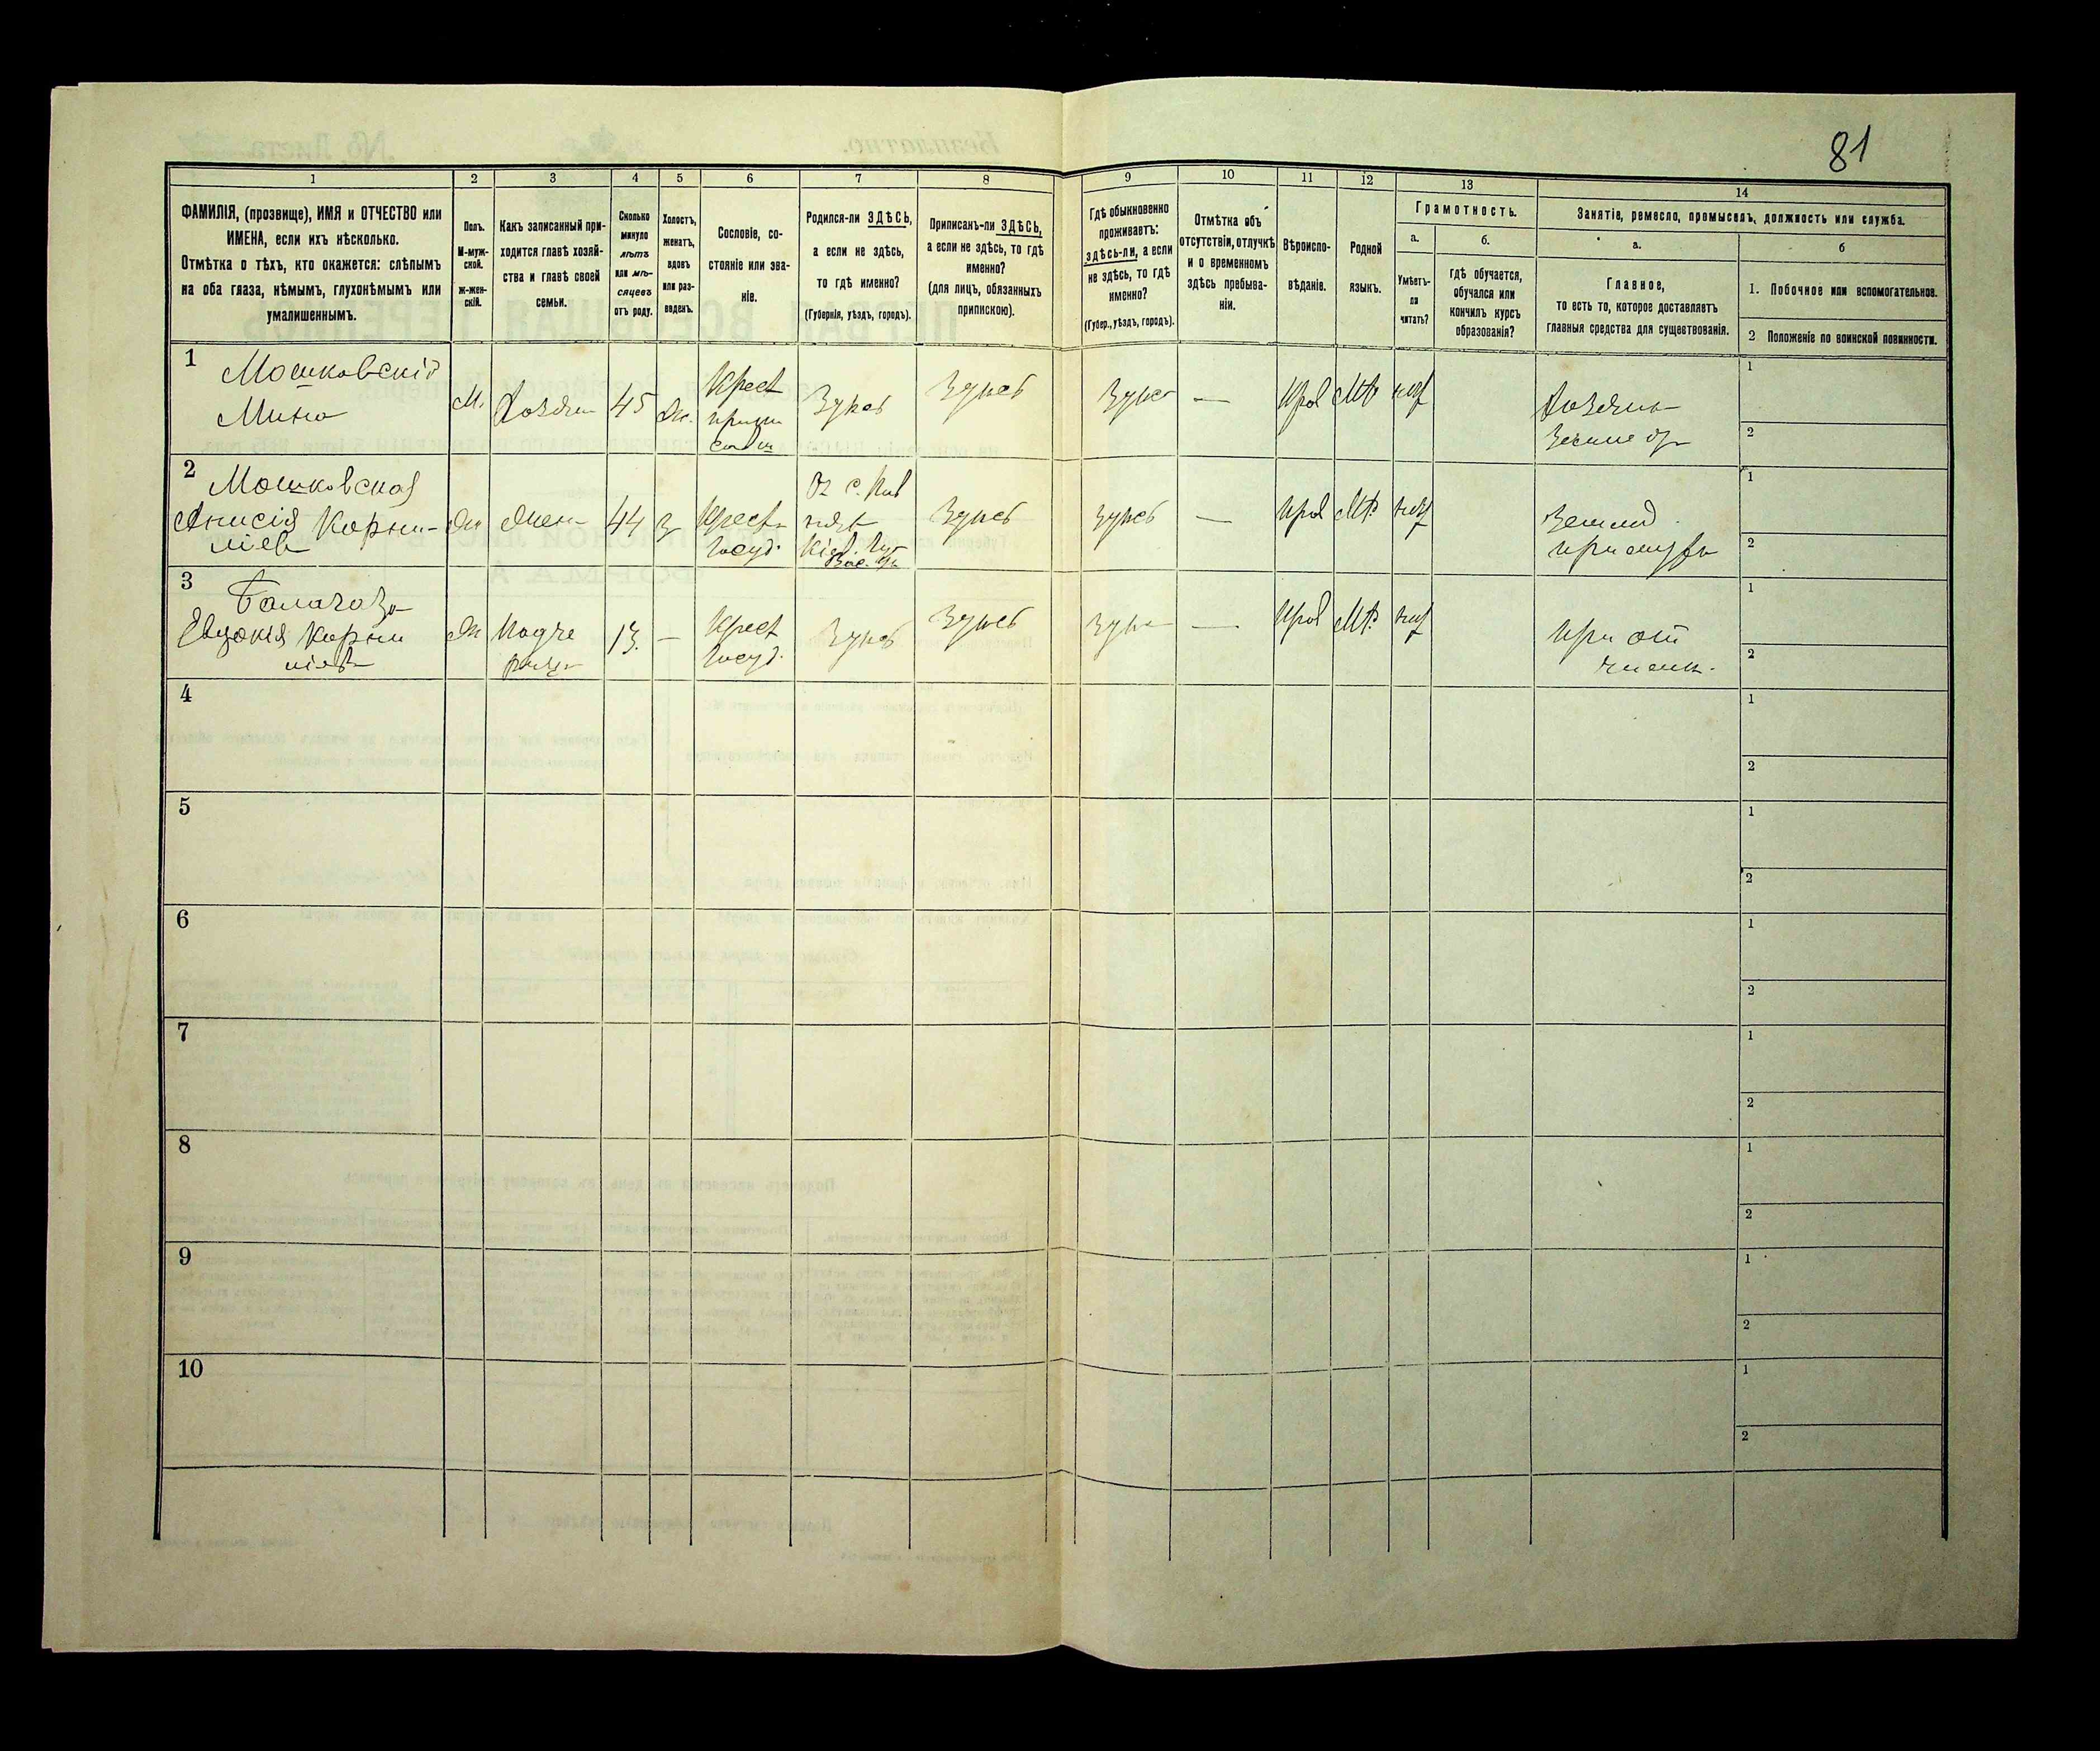 81
1
2
3
4
5
6
7
8
9
10
11
12
13
14
ФАМИЛІЯ, (прозвище), ИМЯ и ОТЧЕСТВО или
ИМЕНА, если ихъ нѣсколько.
Отмѣтка о тѣхъ, кто окажется: слѣпымъ
на оба глаза, нѣмымъ, глухонѣмымъ или
умалишеннымъ.
Полъ.
М-муж-
ской.
Ж-жен-
скій.
Какъ записанный при-
ходится главѣ хозяй-
ства и главѣ своей
семьи.
Сколько
минуло
лѣтъ
или мѣ-
сяцевъ
отъ роду.
Холостъ,
женатъ,
вдовъ
или раз-
веденъ.
Сословіе, со-
стояніе или зва-
ніе.
Родился-ли ЗДѢСЬ,
а если не здѣсь,
то гдѣ именно?
(Губернія, уѣздъ, городъ).
Приписанъ-ли ЗДѢСЬ,
а если не здѣсь, то гдѣ
именно?
(для лицъ, обязанныхъ
припискою).
Гдѣ обыкновенно
проживаетъ:
здѣсь-ли, а если
не здѣсь, то гдѣ
именно?
(Губер., уѣздъ, городъ).
Отмѣтка объ
отсутствіи, отлучкѣ
и о временномъ
здѣсь пребыва-
ніи.
Вѣроиспо-
вѣданіе.
Родной
языкъ.
Грамотность.
а.
Умѣетъ-
ли
читать?
б.
гдѣ обучается,
обучался или
кончилъ курсъ
образованія?
Занятіе, ремесло, промыселъ, должность или служба.
а.
Главное,
то есть то, которое доставляетъ
главныя средства для существованія.
б
1. Побочное или вспомогательное.
2 Положеніе по воинской повинности.
1
Мошковскій
Мина
М.
Хозяин
45
Ж.
Крест
Здѣсь
Здѣсь
Здѣс
—
Прав
Мр
нѣт
Хозяин
1
2
2
Мошковская
Анисія Корни-
ліев
Ж
Жена
44
З
Крест
Госуд.
Кіев. Губ
Вас. у
Здѣсь
Здѣсь
—
Прав
Мр.
нѣт
Землед.
при мужѣ
1
2
3
Евдокія Корни
ліев
Ж
Падче
рица
13.
—
Крест
Госуд.
Здѣсь
Здѣсь
Здѣс
—
Прав
Мр.
нѣт
При от
чим.
1
2
4
1
2
5
1
2
6
1
2
7
1
2
8
1
2
9
1
2
10
1
2